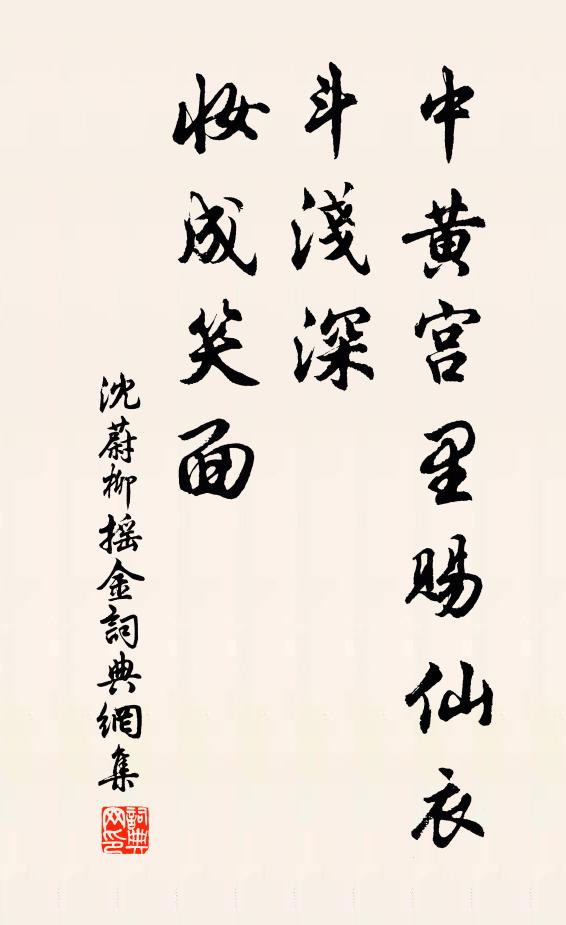 中黄宫里賜仙衣
斗淺深
妝成笑面
沈蔚柳摇金詞典網集
詞典网印